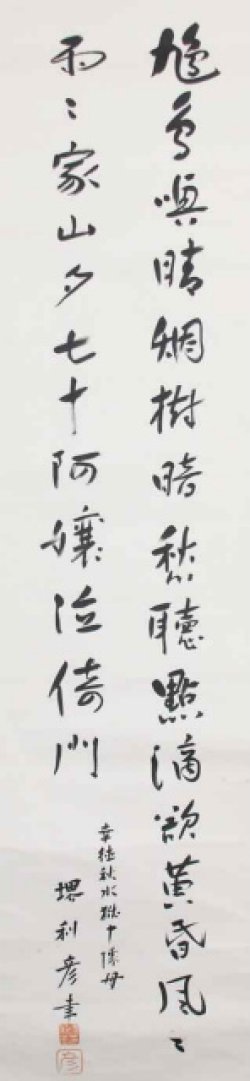 鳩鳥喚晴烟樹暗愁聽點滴欲黃昏風〻
雨〻家山夕七十阿孃泣倚門
幸徳秋水獄中懐母
堺利彦書
彦